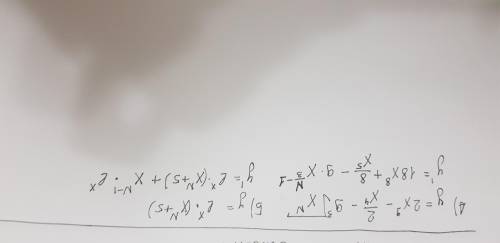 a) y = 2x⁹ - 2/x⁴ - 9 ∛xᴺ б) y = eˣ · (xᴺ+5)
y' = 18x⁸ + 8/x⁵ - 9 · x^(N/3 - 1) y' = eˣ · (xᴺ+5) + xᴺ⁻¹ · eˣ